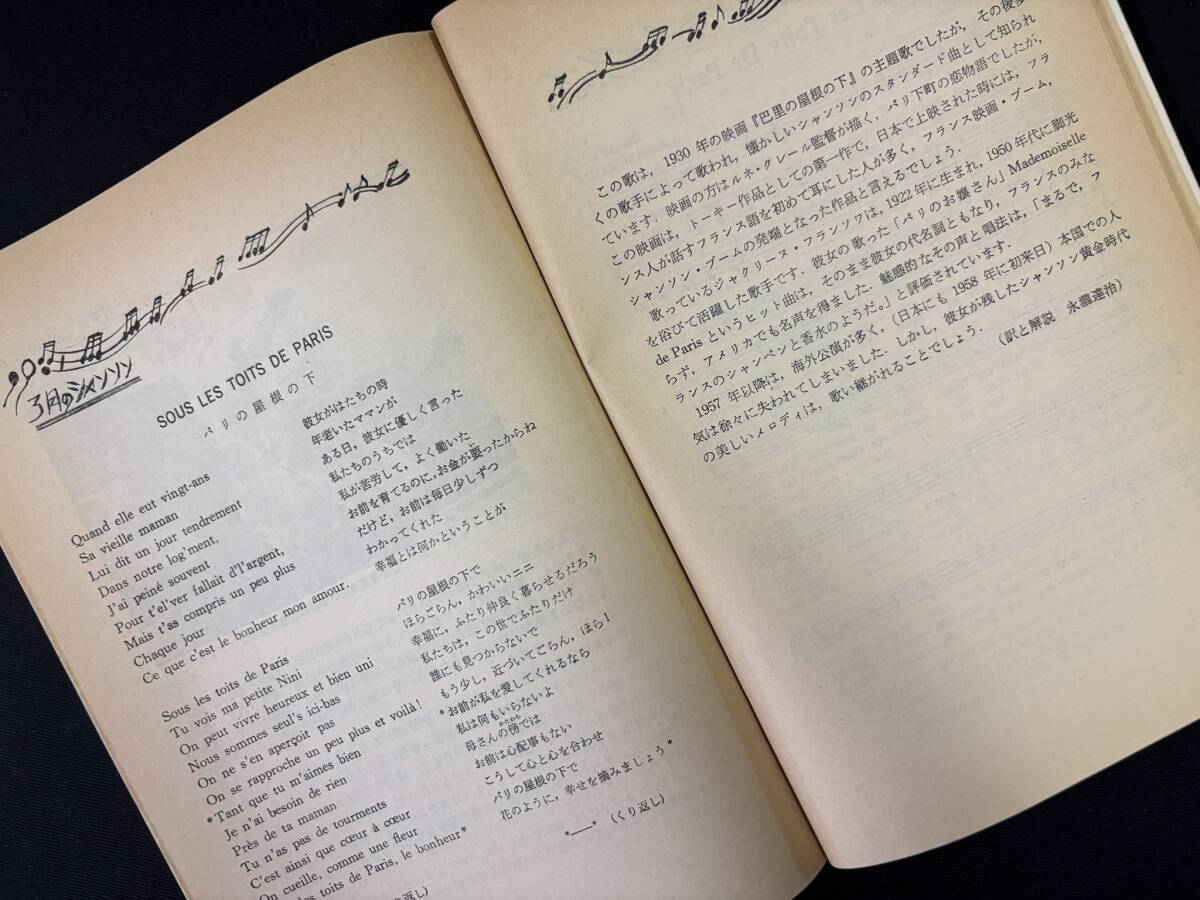 3月のシャンソン
SOUS LES TOITS DE PARIS
パリの屋根の下
Quand elle eut vingt-ans
Sa vieille maman
Lui dit un jour tendrement
Dans notre log'ment,
J'ai peiné souvent
Pour t'el'ver fallait d'l'argent,
Mais t'as compris un peu plus
Chaque jour
Ce que c'est le bonheur mon amour.
Sous les toits de Paris
Tu vois ma petite Nini
On peut vivre heureux et bien uni
Nous sommes seul's ici-bas
On ne s'en aperçoit pas
On se rapproche un peu plus et voilà!
*Tant que tu m'aimes bien
Je n'ai besoin de rien
Près de ta maman
Tu n'as pas de tourments
C'est ainsi que cœur à cœur
On cueille, comme une fleur
les toits de Paris, le bonheur*
返し)
彼女がはたちの時
年老いたママンが
ある日，彼女に優しく言った
私たちのうちでは
私が苦労して，よく働いた
お前を育てるのに，お金が要ったからね
だけど，お前は毎日少しずつ
わかってくれた
幸福とは何かということが
パリの屋根の下で
ほらごらん，かわいいニニ
幸福に，ふたり仲良く暮らせるだろう
私たちは，この世でふたりだけ
誰にも見つからないで
もう少し，近づいてごらん，ほら！
*お前が私を愛してくれるなら
私は何もいらないよ
母さんの傍では
かたわら
お前は心配事もない
こうして心と心を合わせ
パリの屋根の下で
花のように，幸せを摘みましょう*
*——*（くり返し）
この歌は，1930年の映画『巴里の屋根の下』の主題歌でしたが，その後多
くの歌手によって歌われ，懐かしいシャンソンのスタンダード曲として知られ
ています．映画の方はルネ・クレール監督が描く，パリ下町の恋物語でしたが，
この映画は，トーキー作品としての第一作で，日本で上映された時には，フラ
ンス人が話すフランス語を初めて耳にした人が多く，フランス映画・ブーム，
シャンソン・ブームの発端となった作品と言えるでしょう．
歌っているジャクリース・フランソワは，1922年に生まれ，1950年代に脚光
を浴びて活躍した歌手です．彼女の歌った「パリのお嬢さん」Mademoiselle
de Parisというヒット曲は，そのまま彼女の代名詞ともなり，フランスのみな
らず，アメリカでも名声を得ました．魅惑的なその声と唱法は，「まるで，フ
ランスのシャンペンと香水のようだ。」と評価されています．
1957年以降は，海外公演が多く，（日本にも1958年に初来日）本国での人
気は徐々に失われてしまいました．しかし，彼女が残したシャンソン黄金時代
の美しいメロディは，歌い継がれることでしょう．
（訳と解説　永瀧達治）